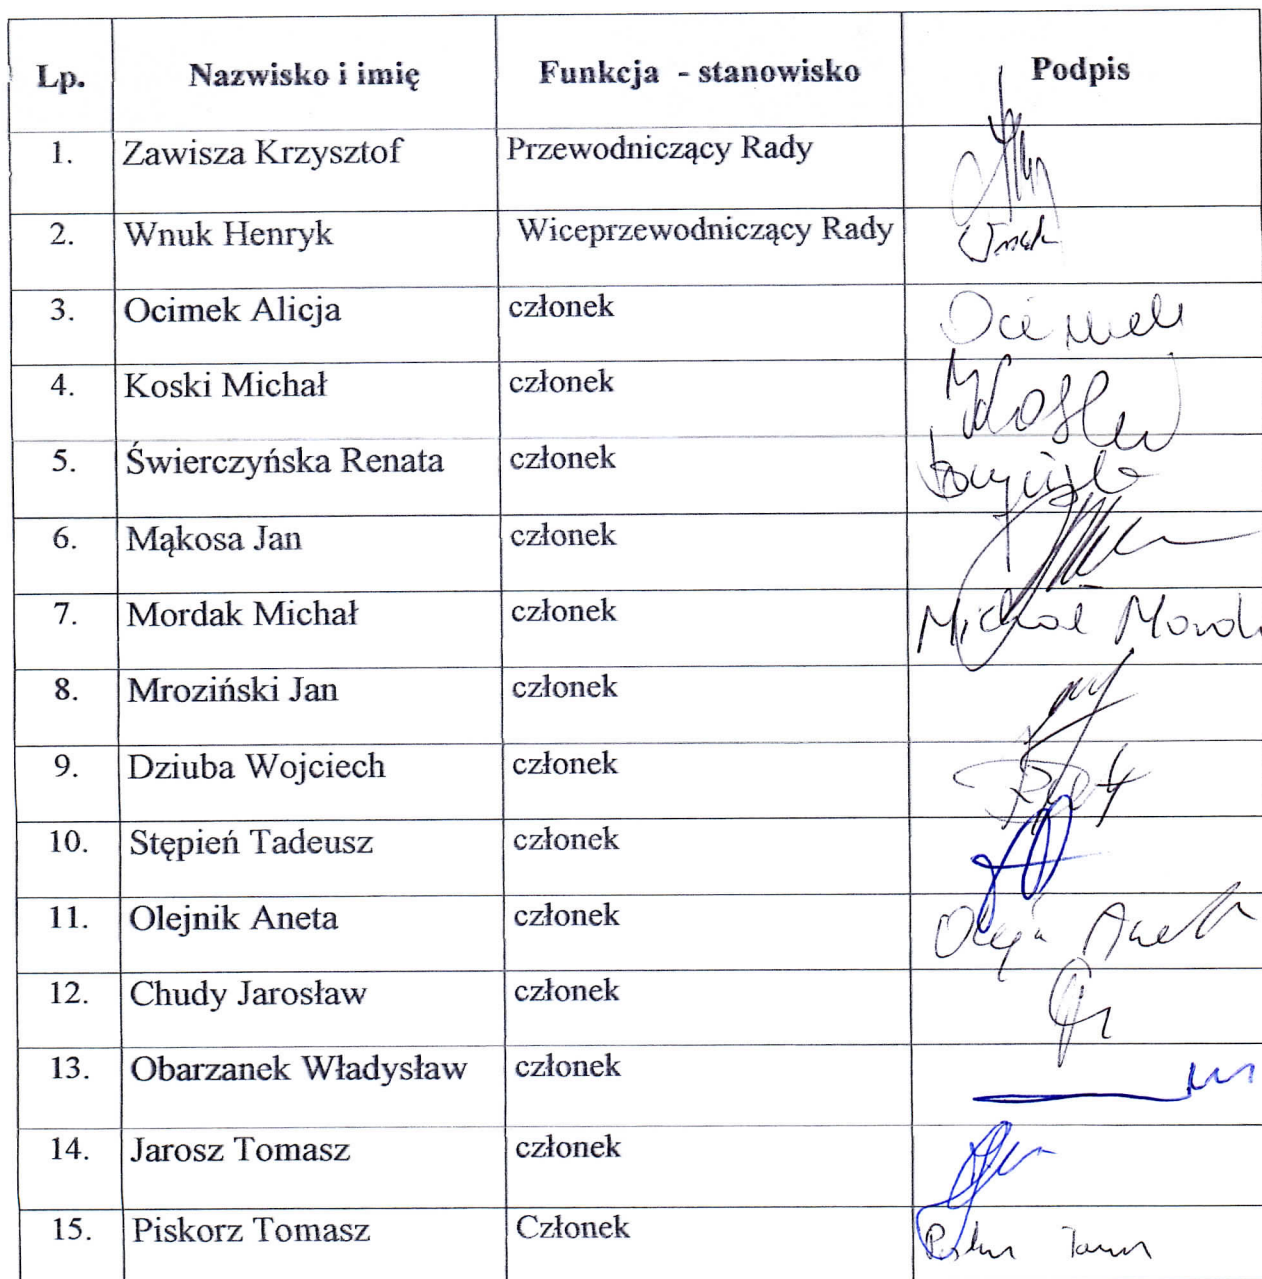 Lp. Nazwisko i imię Funkcja - stanowisko Podpis
1. Zawisza Krzysztof Przewodniczący Rady
2. Wnuk Henryk Wiceprzewodniczący Rady Wnuk
3. Ocimek Alicja członek Ocimek
4. Koski Michał członek
5. Świerczyńska Renata członek
6. Mąkosa Jan członek
7. Mordak Michał członek Michał
8. Mroziński Jan członek
9. Dziuba Wojciech członek
10. Stępień Tadeusz członek
11. Olejnik Aneta członek
12. Chudy Jarosław członek
13. Obarzanek Władysław członek
14. Jarosz Tomasz członek
15. Piskorz Tomasz Członek